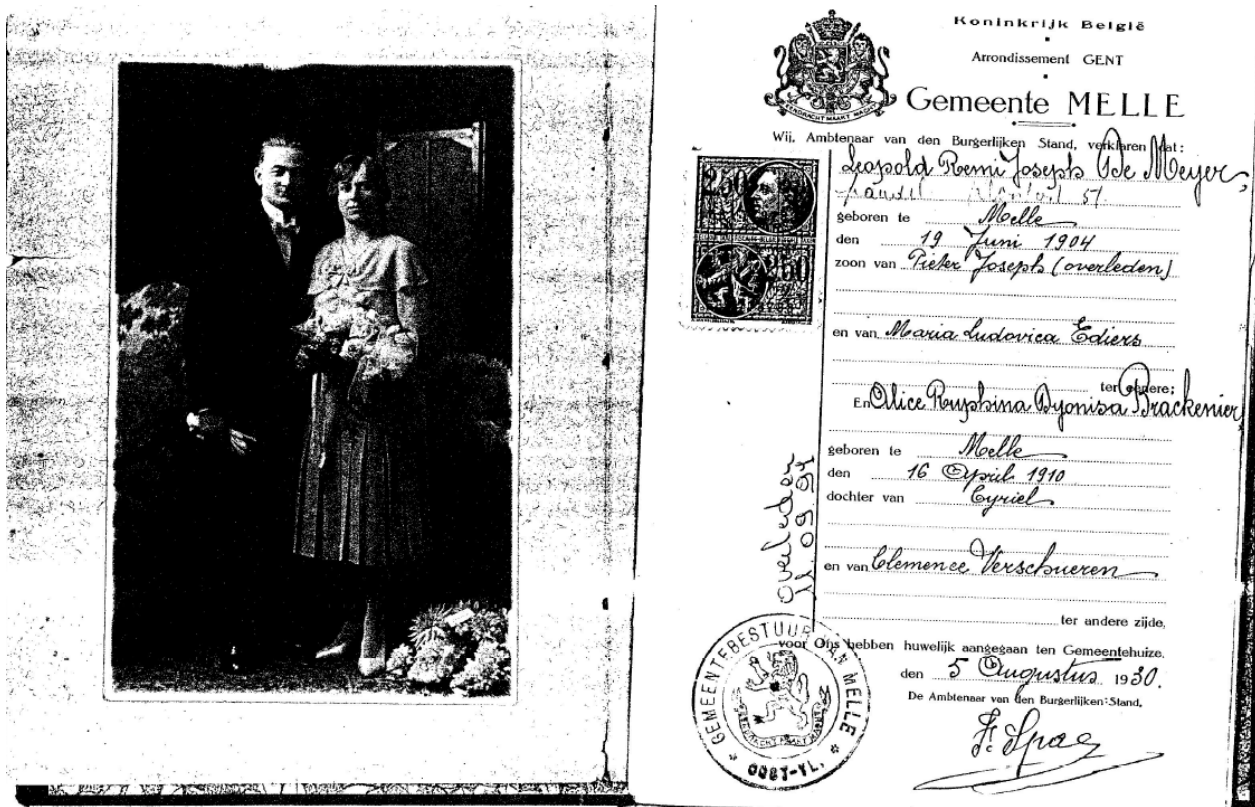 Koninkrijk België
Arrondissement GENT
Gemeente MELLE
EENDRACHT MAAKT MACHT
Wij, Ambtenaar van den Burgerlijken Stand, verklaren dat:
Leopold Remi Joseph De Meyer,
geboren te Melle
den 19 Juni 1904
zoon van Pieter Joseph (overleden)
en van Maria Ludovica Ediers
ter eenere;
En Alice Ruphina Dyonisa Brackenier
geboren te Melle
den 16 April 1910
dochter van Cyriel
en van Clemence Verschueren
ter andere zijde,
voor Ons hebben huwelijk aangegaan ten Gemeentehuize,
den 5 Augustus 1930.
De Ambtenaar van den Burgerlijken Stand,
2.50
2.50
overleden
09
GEMEENTEBESTUUR VAN MELLE
EENDRACHT MAAKT MACHT
* OOST-VL. *